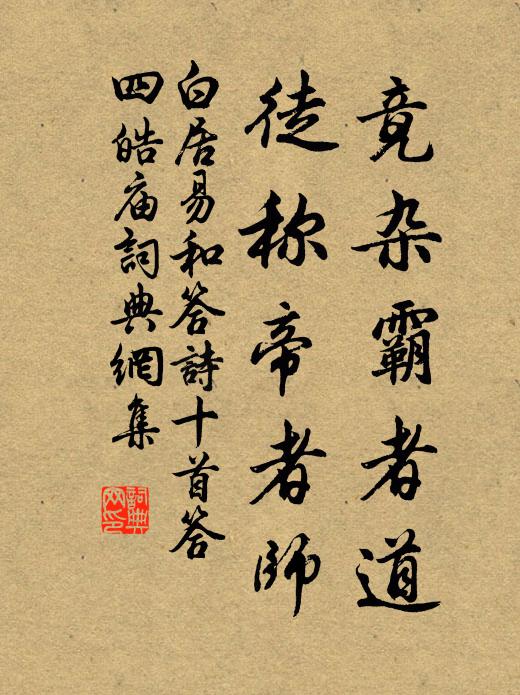 竟杂霸者道
徒称帝者師
白居易和答詩十首答
四皓庙詞典網集
詞典
网印